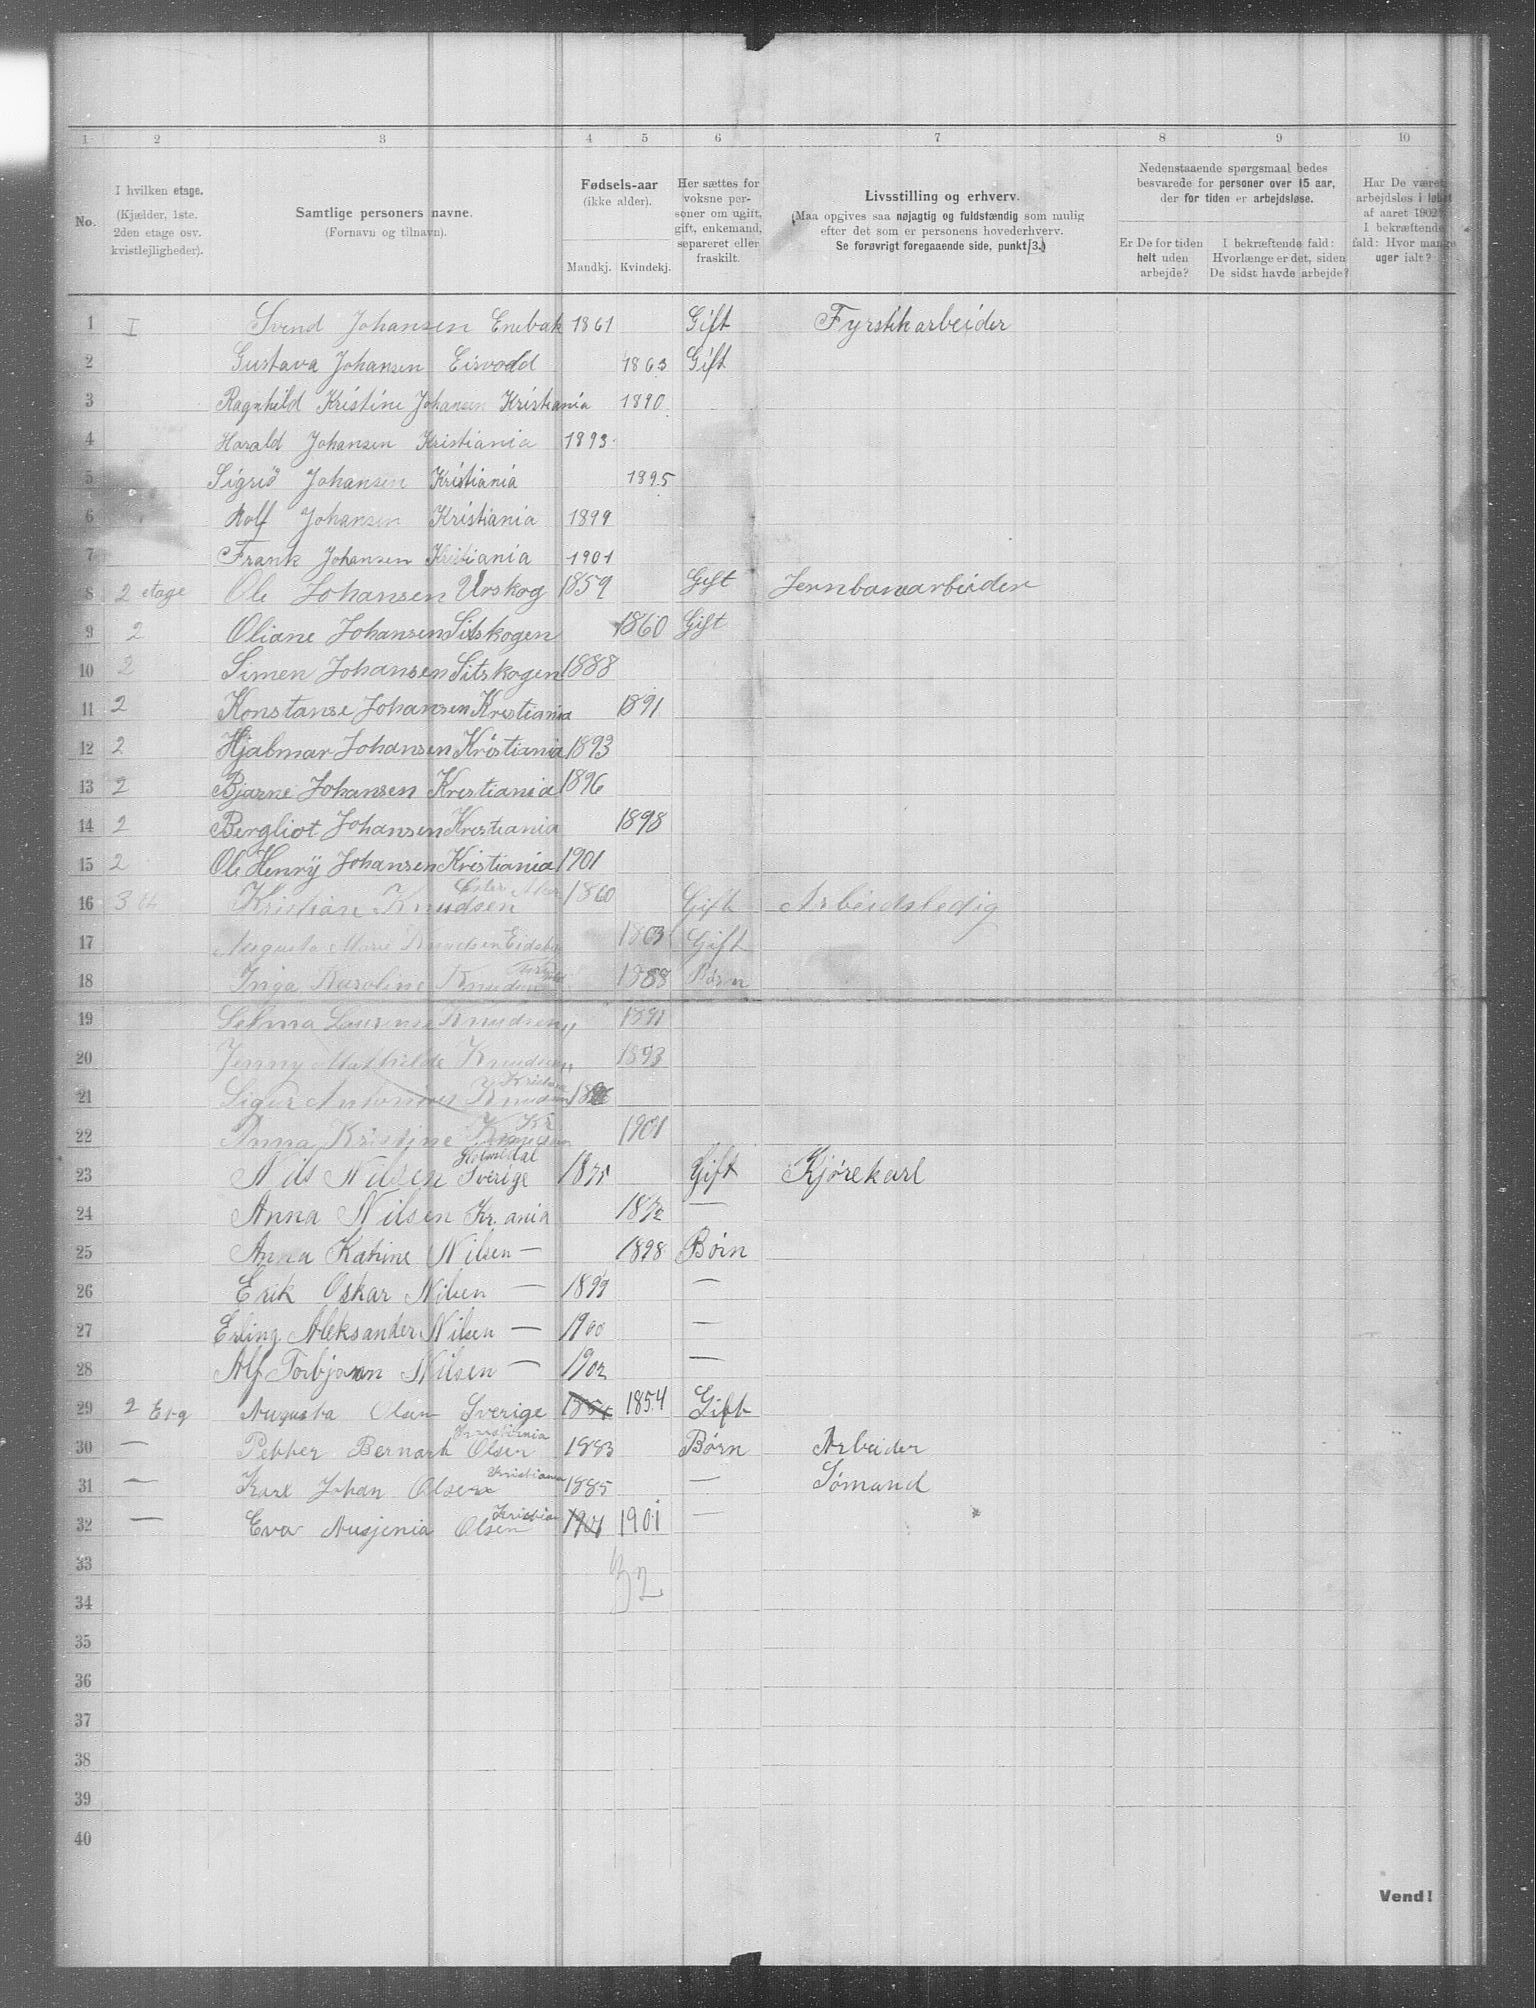 1 2 3 4 5 6 7 8 9 10
No.
I hvilken etage.
(Kjælder, 1ste.
2den etage osv.
kvistlejligheder).
Samtlige personers navne.
(Fornavn og tilnavn).
Fødsels-aar
(ikke alder).
Mandkj. Kvindekj.
Her sættes for
voksne per-
soner om ugift,
gift, enkemand,
separeret eller
fraskilt.
Livsstilling og erhverv.
(Maa opgives saa nøjagtig og fuldstændig som mulig
efter det som er personens hovederhverv.
Se forøvrigt foregaaende side, punkt 3.)
Nedenstaaende spørgsmaal bedes
besvarede for personer over 15 aar,
der for tiden er arbejdsløse.
Er De for tiden
helt uden
arbejde?
I bekræftende fald:
Hvorlænge er det, siden
De sidst havde arbejde?
Har De været
arbejdsløs i løbet
af aaret 1902?
I bekræftende
fald: Hvor mange
uger ialt?
1 I Svend Johansen Enebak 1861 Gift Fyrstikarbeider
2 Gustava Johansen Eisvodd 1863 Gift
3 Ragnhild Kristine Johansen Kristiania 1890
4 Harald Johansen Kristiania 1893
5 Sigrid Johansen Kristiania 1895
6 Rolf Johansen Kristiania 1899
7 Frank Johansen Kristiania 1901
8 2 etage Ole Johansen Urskog 1859 Gift Jernbanearbeider
9 2 Oliane Johansen Sitskogen 1860 Gift
10 2 Simen Johansen Sitskogen 1888
11 2 Konstanse Johansen Krestiania 1891
12 2 Hjalmar Johansen Kristiania 1893
13 2 Bjarne Johansen Krestiania 1896
14 2 Bergliot Johansen Krestiania 1898
15 2 Ole Henry Johansen Kristiania 1901
16 3 Kristian Knudsen 1860 Gift Arbeidsledig
17 Augusta Marie Knudsen 1863 Gift
18 Inga Karoline Knudsen 1888 Børn
19 Selma Laurense Knudsen " 1891
20 Jenny Mathilde Knudsen " 1893
21 Sigur Antonius Knudsen
22 Anna Kristine Knudsen Kr 1901
23 Nils Nilsen Sverige 1875 Gift Kjørekarl
24 Anna Nilsen Kr.ania —
25 Anna Katrine Nilsen — 1898 Børn
26 Erik Oskar Nilsen — 1899 —
27 Erling Aleksander Nilsen — 1900 —
28 Alf Torbjørn Nilsen — 1902 —
29 2 Etg Augusta Olsen Sverige 1854 1854 Gift
30 — Petter Bernart Olsen Kristiania 1883 Børn Arbeider
31 — Karl Johan Olsen Kristiania 1885 — Sømand
32 — Eva Ausjenia Olsen Kristian 1901 1901 —
33
32
34
35
36
37
38
39
40
Vend!